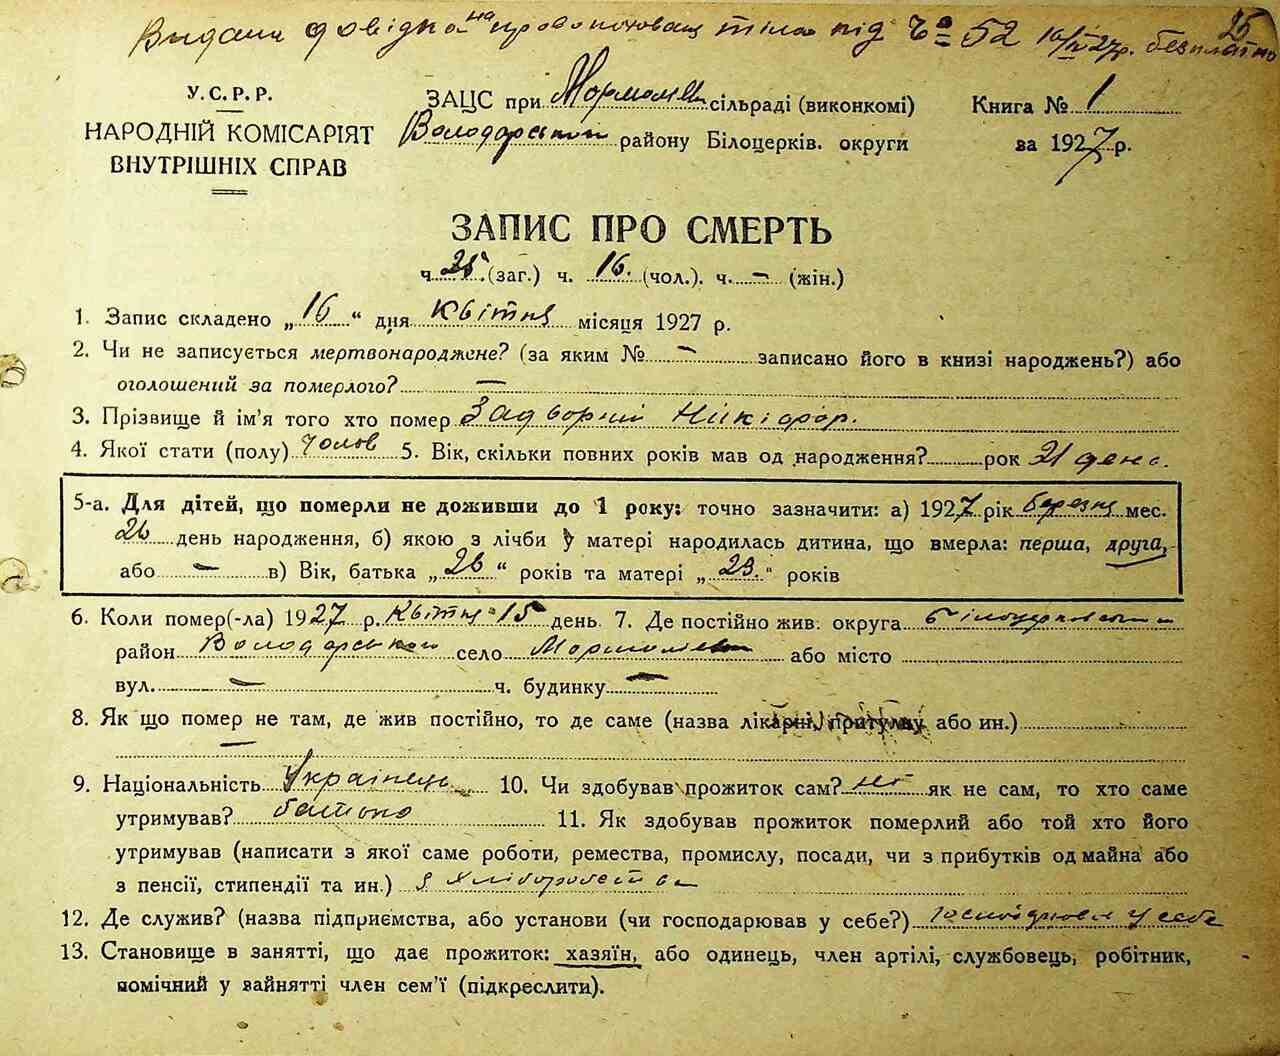 Видана довідка на право похован тіла під Ч= 52 16/IV 27р. безплатно
25
У.С.Р.Р.
НАРОДНІЙ КОМІСАРІЯТ
ВНУТРІШНІХ СПРАВ
ЗАЦС при сільраді (виконкомі)
Володарського району Білоцерків. округи
Книга № 1
за 1927 р.
ЗАПИС ПРО СМЕРТЬ
ч. 25 (заг.) ч. 16. (чол.). ч. – (жін.)
1. Запис складено „16“ дня Квітня місяця 1927 р.
2. Чи не записується мертвонароджене? (за яким № – записано його в книзі народжень?) або
оголошений за померлого? –
3. Прізвище й ім'я того хто помер Задворний Никіфор.
4. Якої стати (полу) чолов 5. Вік, скільки повних років мав од народження? рок 21 день.
5-а. Для дітей, що померли не доживши до 1 року: точно зазначити: а) 1927 рік березня мес.
26 день народження, б) якою з лічби у матері народилась дитина, що вмерла: перша, друга,
або – в) Вік, батька „26“ років та матері „23.“ років
6. Коли помер(-ла) 1927 р. Квітня 15 день 7. Де постійно жив. округа Білоцерківський
район Володарського село або місто
вул. – ч. будинку –
8. Як що помер не там, де жив постійно, то де саме (назва лікарні, притулку або ин.)
–
9. Національність Українець 10. Чи здобував прожиток сам? ні як не сам, то хто саме
утримував? батько 11. Як здобував прожиток померлий або той хто його
утримував (написати з якої саме роботи, ремества, промислу, посади, чи з прибутків од майна або
з пенсії, стипендії та ин.) з хліборобства
12. Де служив? (назва підприємства, або установи (чи господарював у себе?) господарював у себе
13. Становище в занятті, що дає прожиток: хазяїн, або одинець, член артілі, службовець, робітник,
помічний у зайнятті член сем'ї (підкреслити).